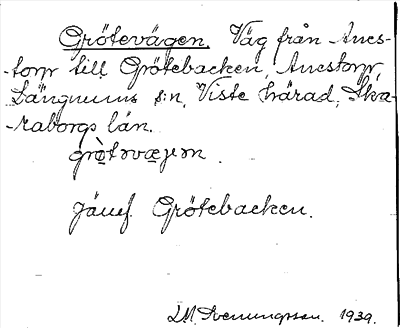 Grötevägen. Väg från Anes-
torp till Grötebacken, Anestorp,
Längnums s:n, Viste härad, Ska-
raborgs län.
grøtəvæjən.
Jämf. Grötebacken.
1939.